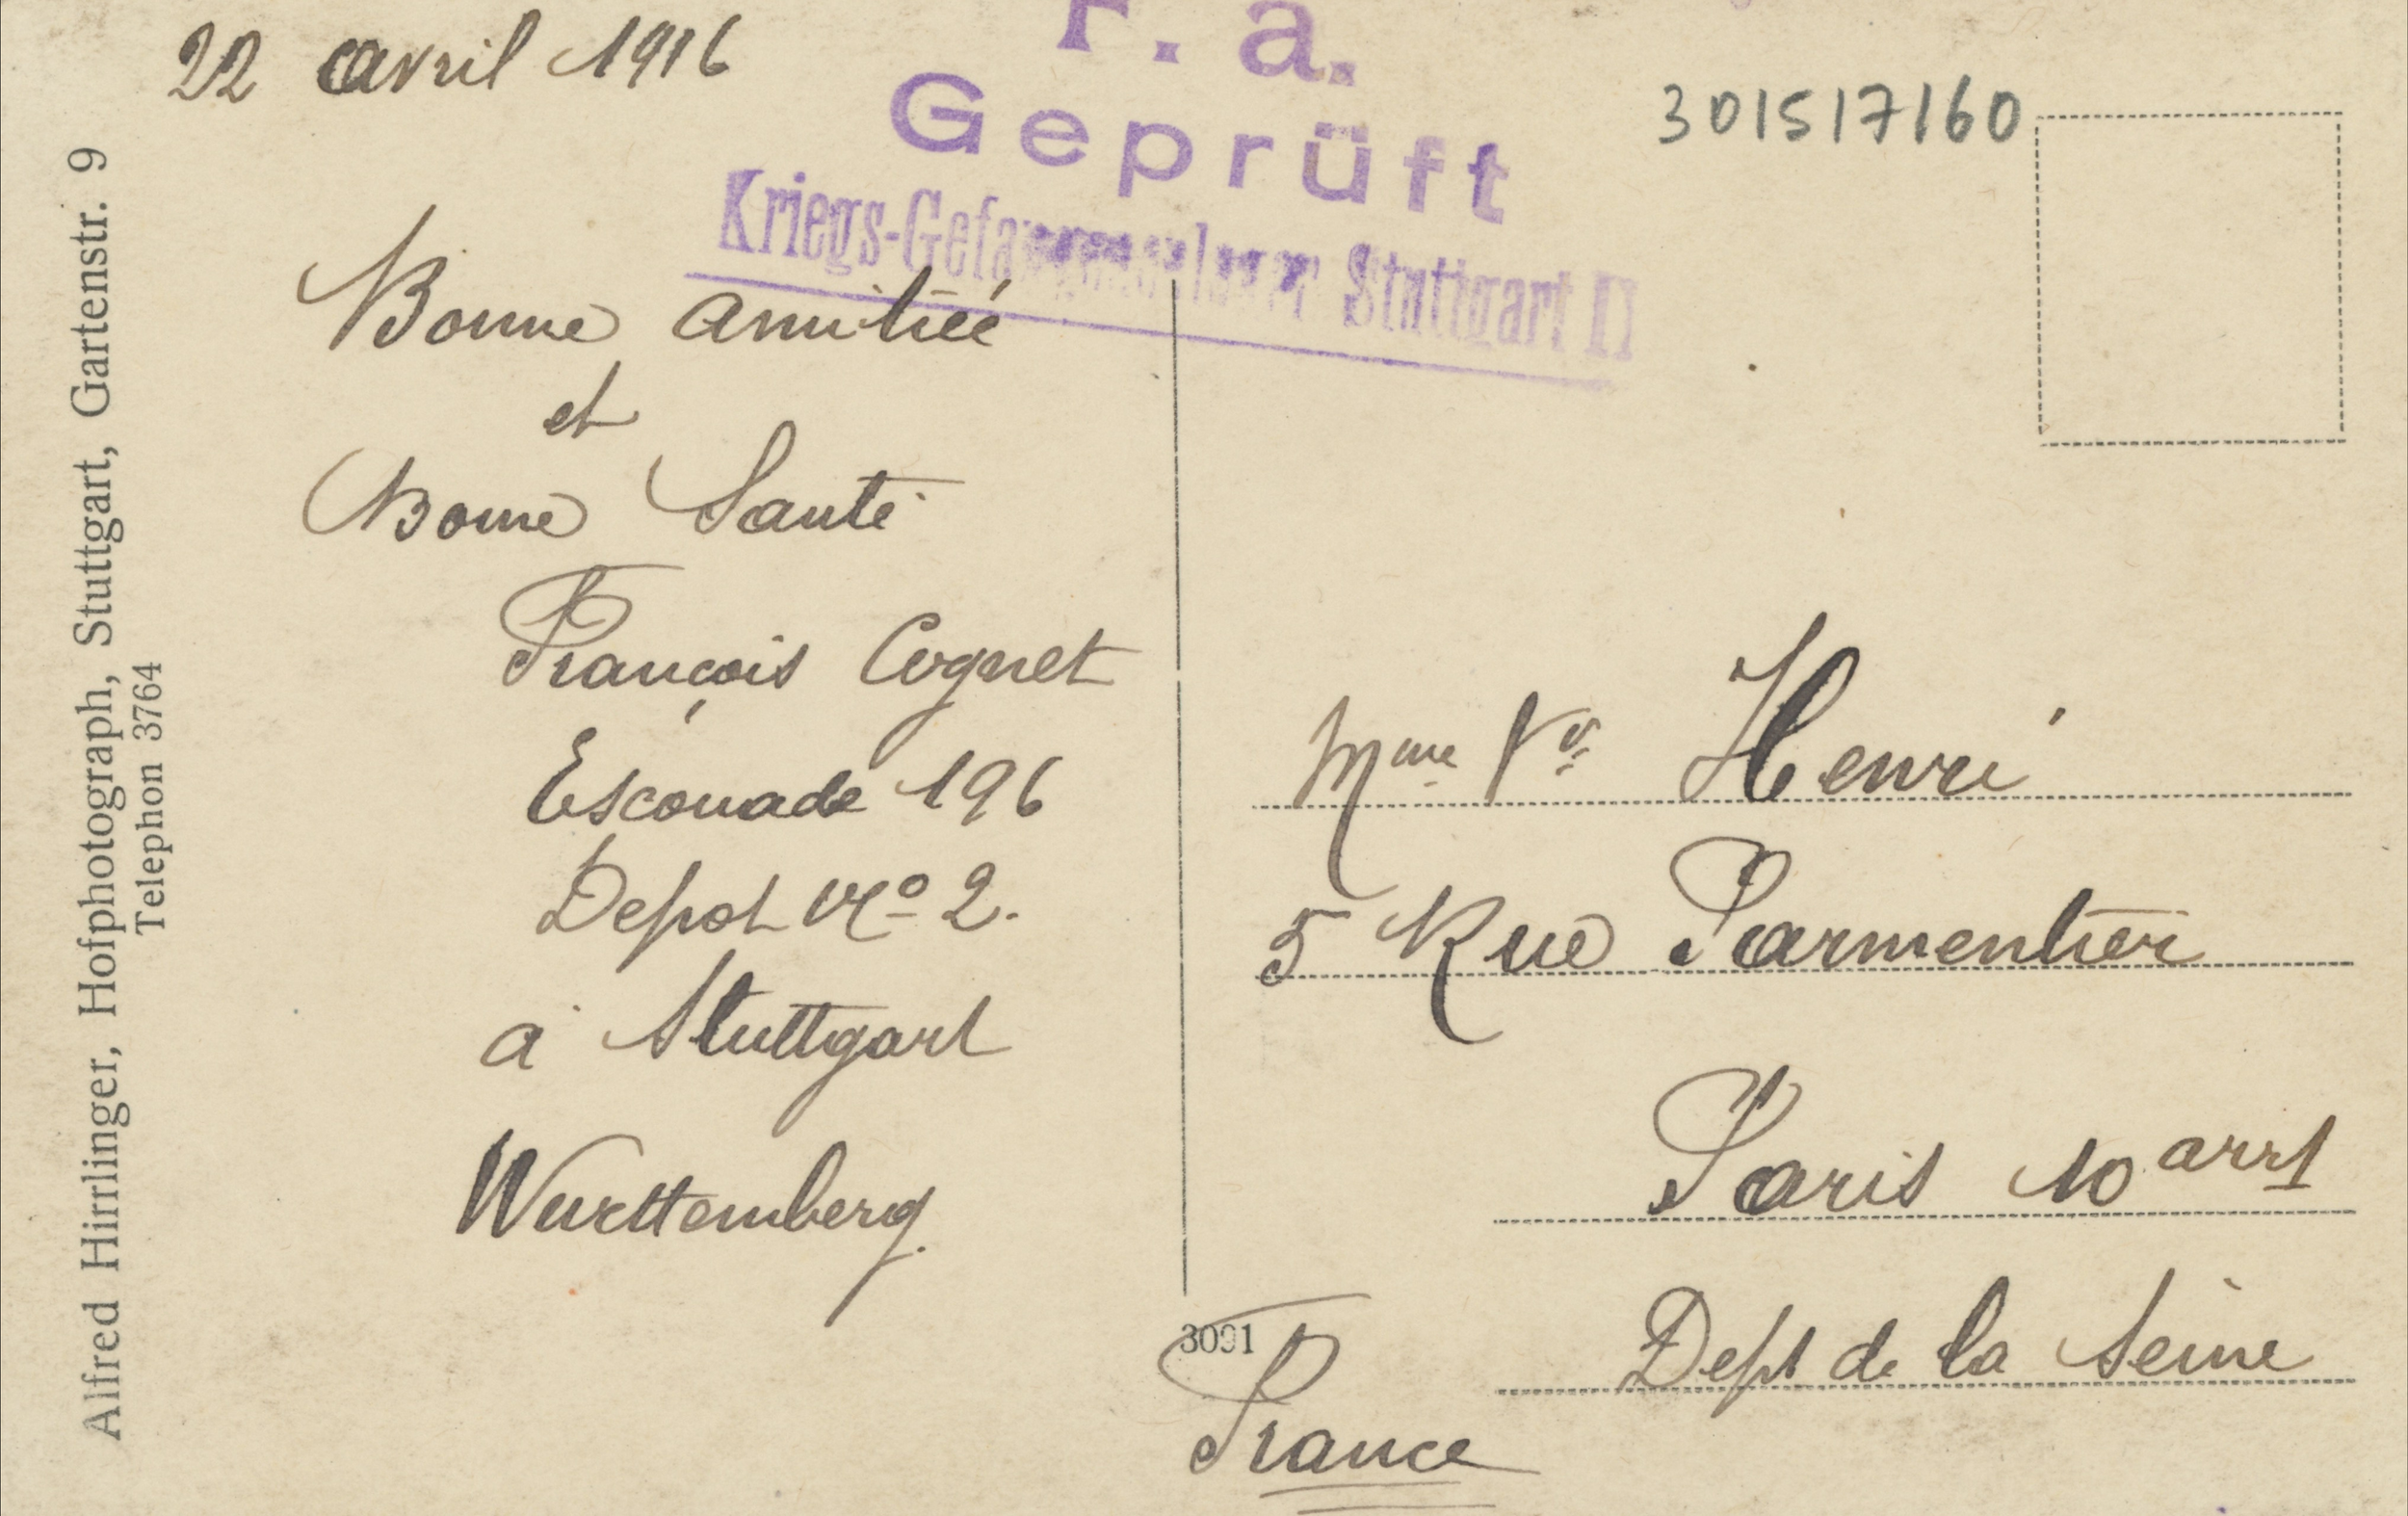 22 avril 1916
F. a.
Geprüft
Kriegs-Gefangenenlager Stuttgart II
301517160
Bonne amitiéé
et
Bonne Santé
François Cognet
Escouade 196
Depot No 2.
a Stuttgart
Wurttemberg.
Mme Vve Henri
5 Rue Parmentier
Paris 10 arrt
Dept de la Seine
France
3091
Alfred Hirrlinger, Hofphotograph, Stuttgart, Gartenstr. 9
Telephon 3764